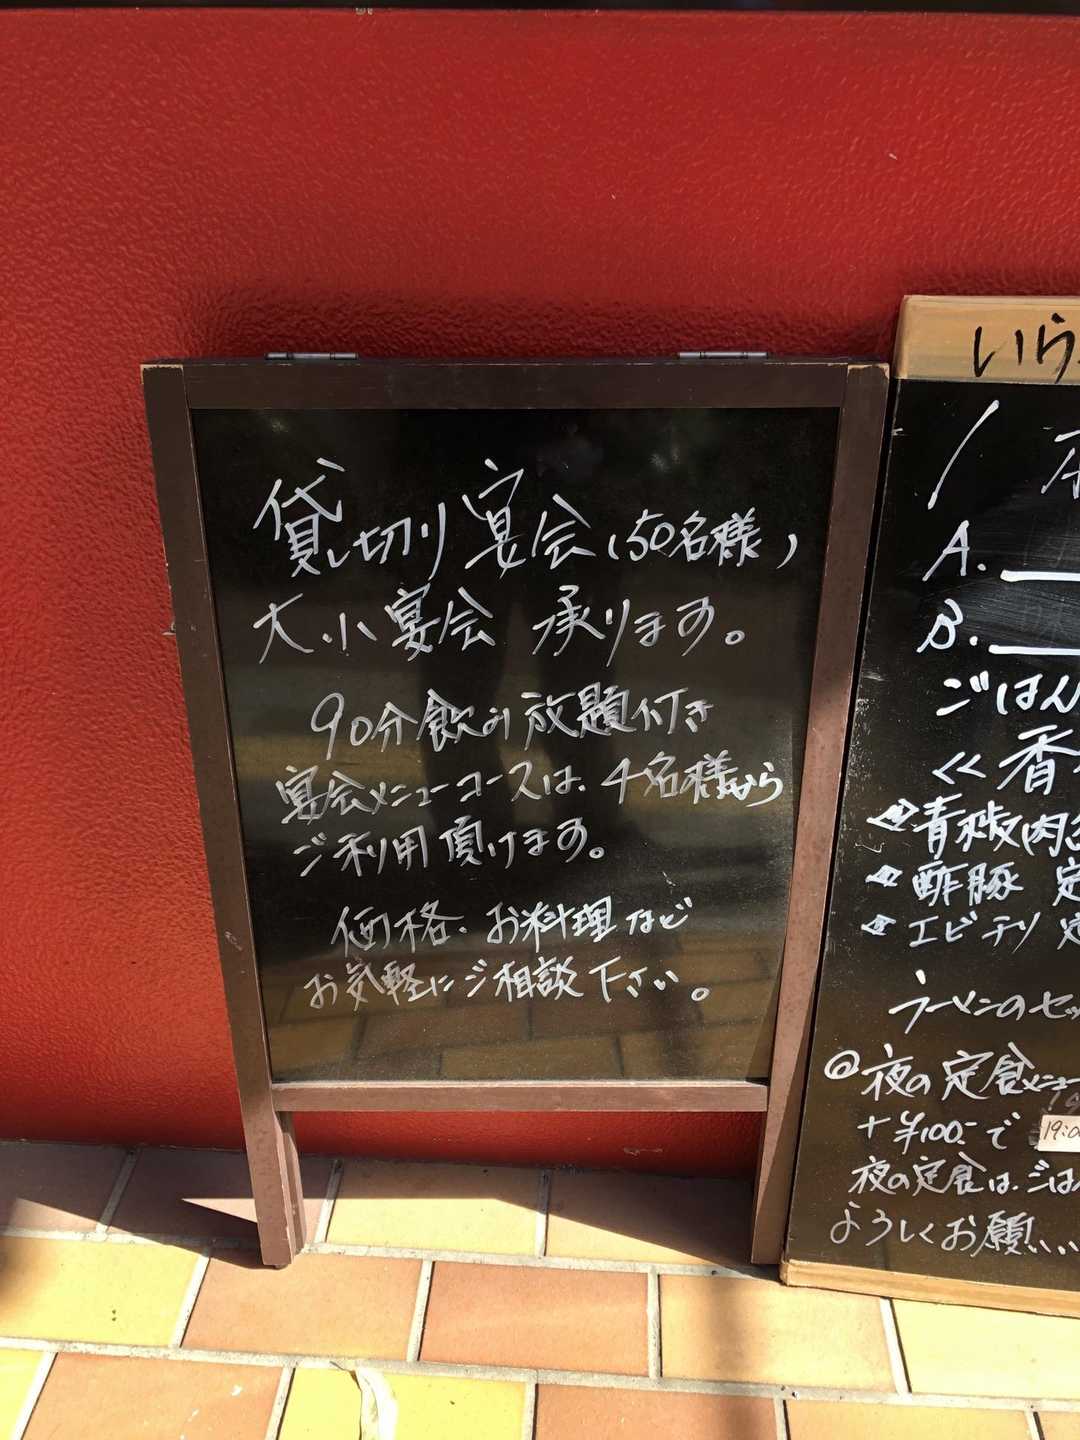 貸し切り宴会(50名様)
大.小宴会 承ります。
90分飲み放題付き
宴会メニューコースは、4名様から
ご利用頂けます。
価格、お料理など
お気軽にご相談下さい。
いら
A.
B.
ごはん
<< 香
青椒肉
酢豚 定
エビチリ 定
ラーメンのセッ
@夜の定食メニュー
+¥100.-で
19:00
夜の定食は、ごは
ようしくお願い